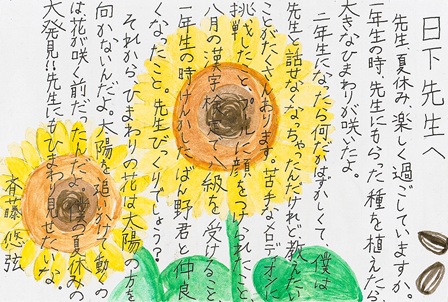 日下先生へ
先生、夏休み、楽しく過ごしていますか。
一年生の時、先生にもらった種を植えたら、
大きなひまわりが咲いたよ。
二年生になったら何だかはずかしくて、僕は
先生と話せなくなっちゃったんだけれど、教えたい
ことがたくさんあります。苦手なメロディオンに
挑戦したこと、プールに顔をつけられたこと、
八月の漢字検定で八級を受けること、
一年生の時けんかしたばん野君と仲良
くなったこと。先生びっくりでしょう?
それから、ひまわりの花は太陽の方を
向かないんだよ。太陽を追いかけて動くの
は花が咲く前だったんだよ。僕の夏休みの
大発見!!先生にもひまわり見せたいな。
斉藤 悠弦